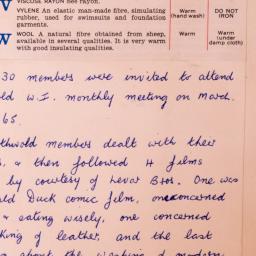 VISCOSE RAYON See rayon.
VYLENE An elastic man-made fibre, simulating rubber, used for swimsuits and foundation garments.
Warm (hand wash)
DO NOT IRON
W
WOOL A natural fibre obtained from sheep, available in several qualities. It is very warm with good insulating qualities.
Warm
Warm (under damp cloth)
30 members were invited to attend
ld W.I. monthly meeting on March.
65.
thwold members dealt with their
& then followed 4 films
by courtesy of Lever Bros. One was
ld Duck comic film, one concerned
& eating wisely, one concerned
king of leather, and the last
about the washing of modern